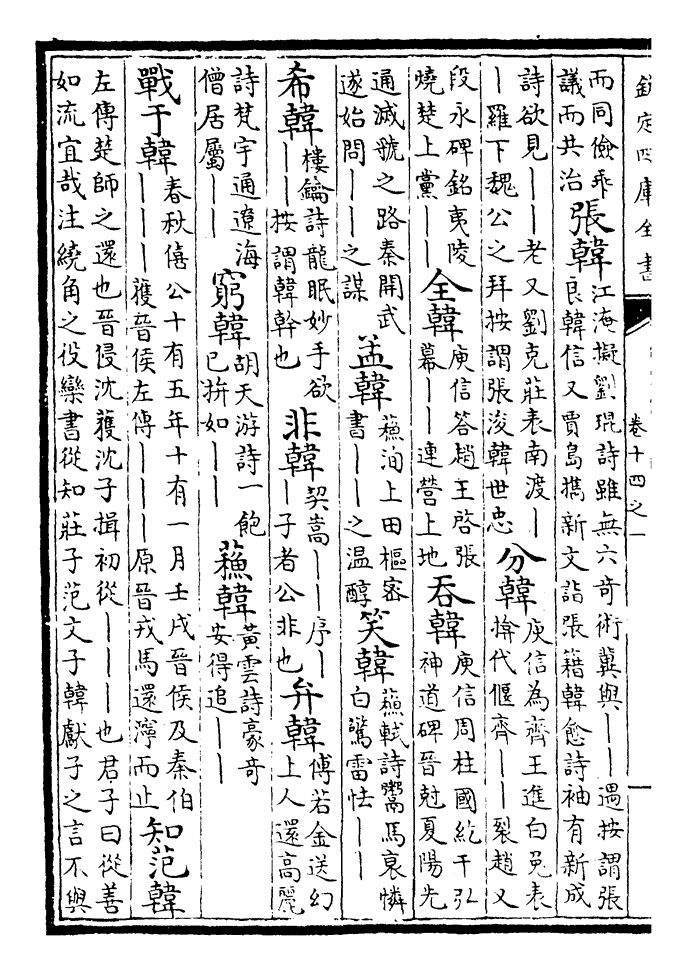 欽定四庫全書
卷十四之一
而同儉乖
議而共治
張韓
江淹擬劉琨詩雖無六奇術冀與——遇按謂張
良韓信又賈島攜新文詣張籍韓愈詩袖有新成
詩欲見——老又劉克莊表南渡—
—羅下魏公之拜按謂張浚韓世忠
分韓
庾信為齊王進白兔表
擀代偃齊——裂趙又
段永碑銘夷陵
曉楚上黨——
全韓
庾信答趙王啓張
幕——連營上地
吞韓
庾信周柱國紇干弘
神道碑晉尅夏陽先
通滅虢之路秦開武
遂始問——之謀
孟韓
蘇洵上田樞密
書——之温醇
笑韓
蘇軾詩鬻馬哀憐
白驚雷怯——
希韓
樓鑰詩龍眠妙手欲
——按謂韓幹也
非韓
契嵩——序—
—子者公非也
弁韓
傅若金送幻
上人還高麗
詩梵宇通遼海
僧居屬——
窮韓
胡天游詩一飽
已拚如——
蘇韓
黃雲詩豪奇
安得追——
戰于韓
春秋僖公十有五年十有一月壬戌晉侯及秦伯
———獲晉侯左傳———原晉戎馬還濘而止
知范韓
左傳楚師之還也晉侵沈獲沈子揖初從———也君子曰從善
如流宜哉注繞角之役欒書從知莊子范文子韓獻子之言不與